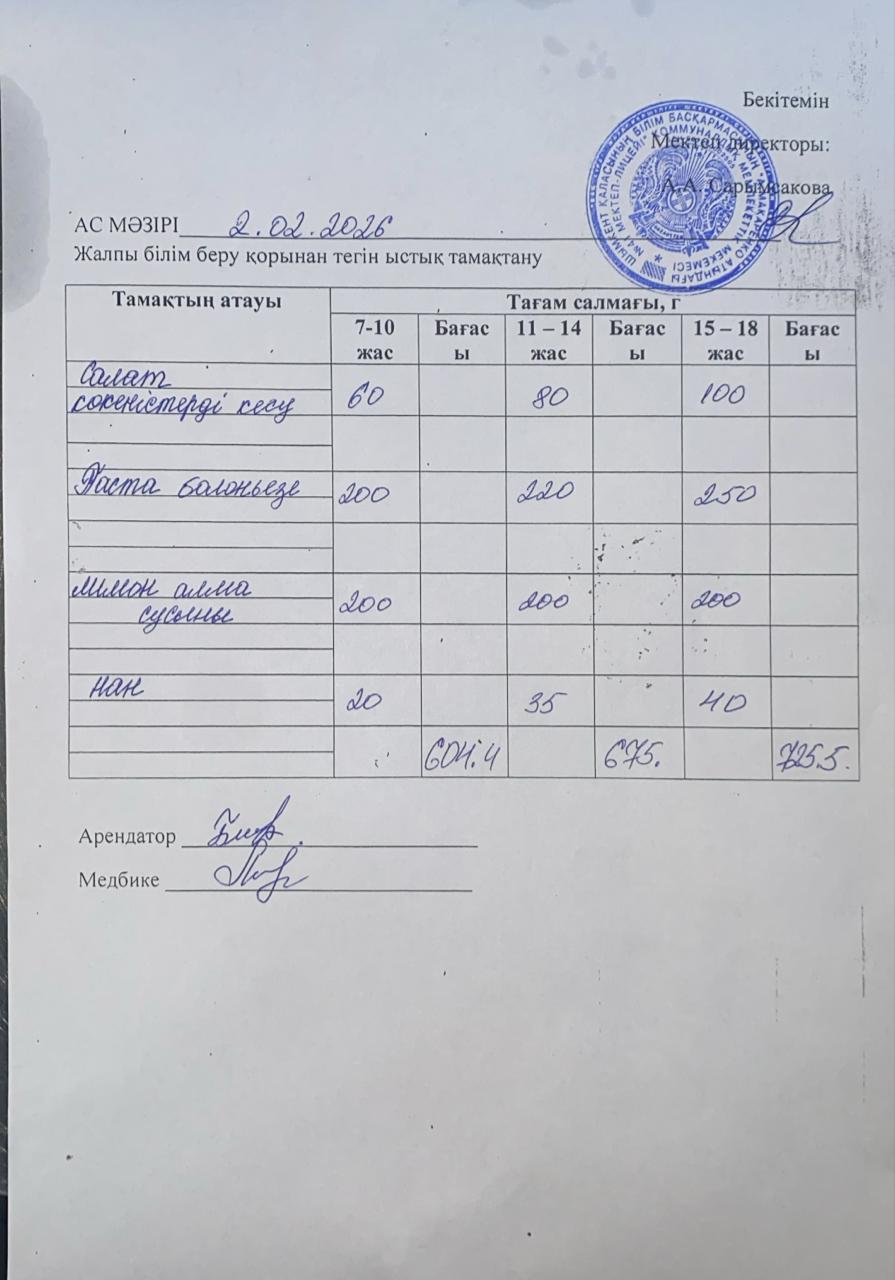 Бекітемін
Мектеп директоры:
А.А. Сарымсакова
АС МӘЗІРІ 2.02.2026
Жалпы білім беру қорынан тегін ыстық тамақтану
Тамақтың атауы Тағам салмағы, г
7-10 жас Бағасы 11 – 14 жас Бағасы 15 – 18 жас Бағасы
Салат
көкөністерді кесу 60 80 100
Паста балоньезе 200 220 250
Лимон алма
сусыны 200 200 200
нан 20 35 40
604.4 675. 725.5.
Арендатор
Медбике